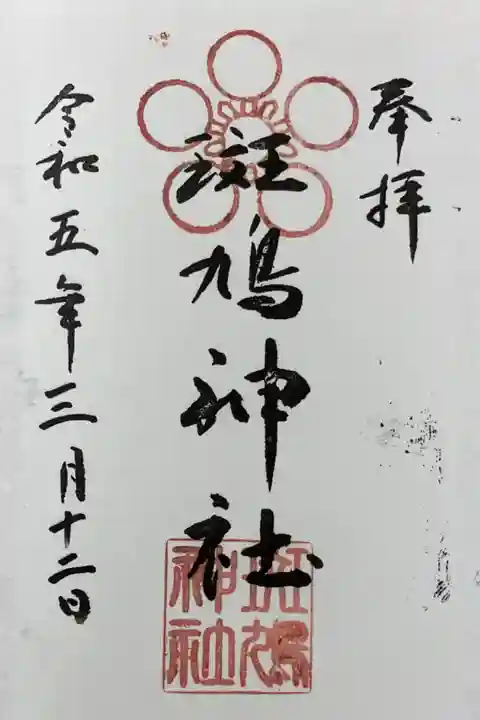 奉拝
斑鳩神社
斑鳩
神社
令和五年三月十二日